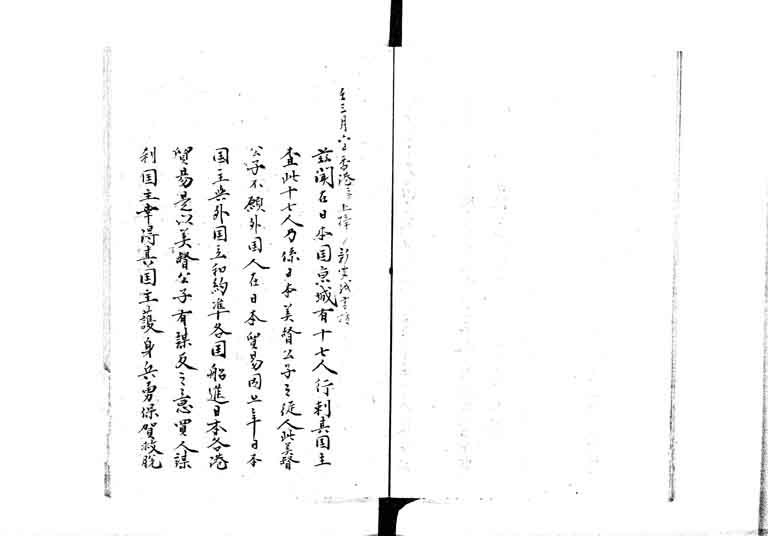 三月 香港 上梓ノ新聞
茲聞在日本国京城有十七人行刺真国主
査此十七人乃係日本美督公子之従人此美督
公子不願外国人在日本貿易因上年日本
国主与外国立和約準各国船進日本各港
貿易是以美督公子有謀反之意買人謀
刺国主幸得真国主護身兵勇保駕救脱